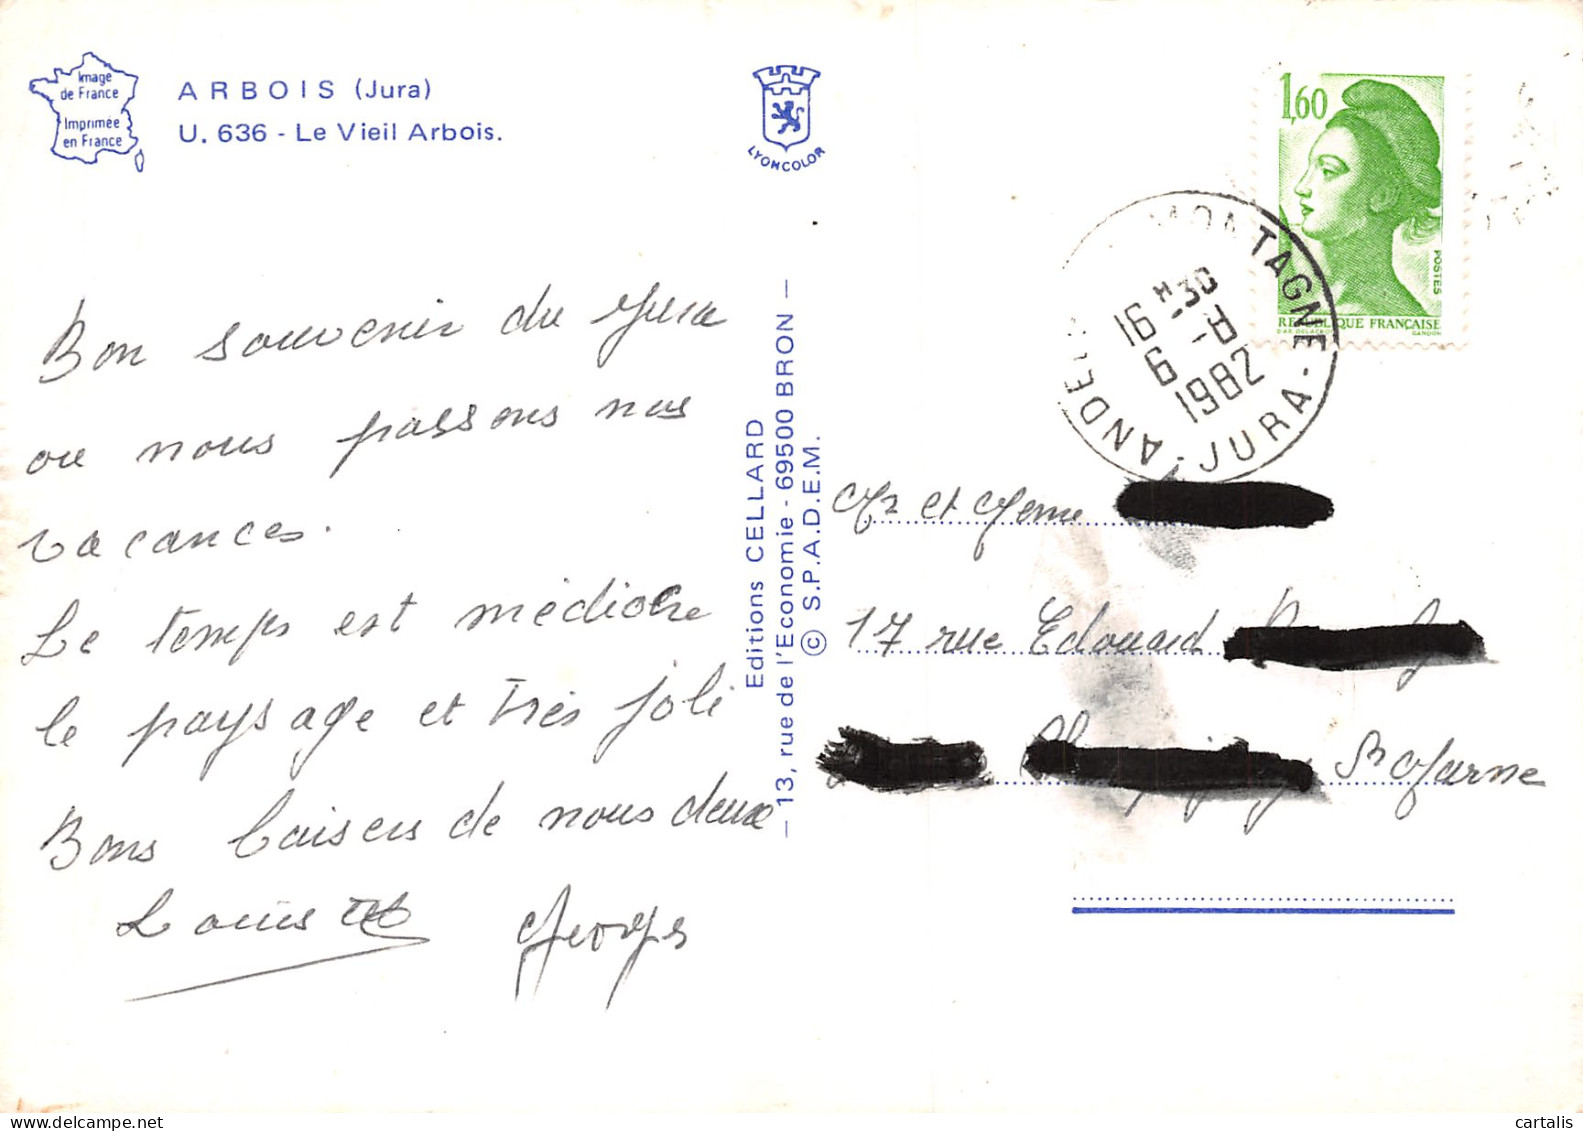 Image
de France
Imprimée
en France
ARBOIS (Jura)
U. 636 - Le Vieil Arbois.
LYONCOLOR
1,60
POSTES
REPUBLIQUE FRANÇAISE
GANDON
MONTAGNE
16 H 30
6 - 8
1982
JURA
Bon souvenir du Jura
ou nous passons nos
vacances.
Le temps est médiocre
le paysage et très joli
Bons baisers de nous deux
Louisette
Georges
Editions CELLARD
— 13, rue de l'Economie - 69500 BRON —
© S.P.A.D.E.M.
Mr et Mme
17 rue Edouard
Sr Marne
cartalis